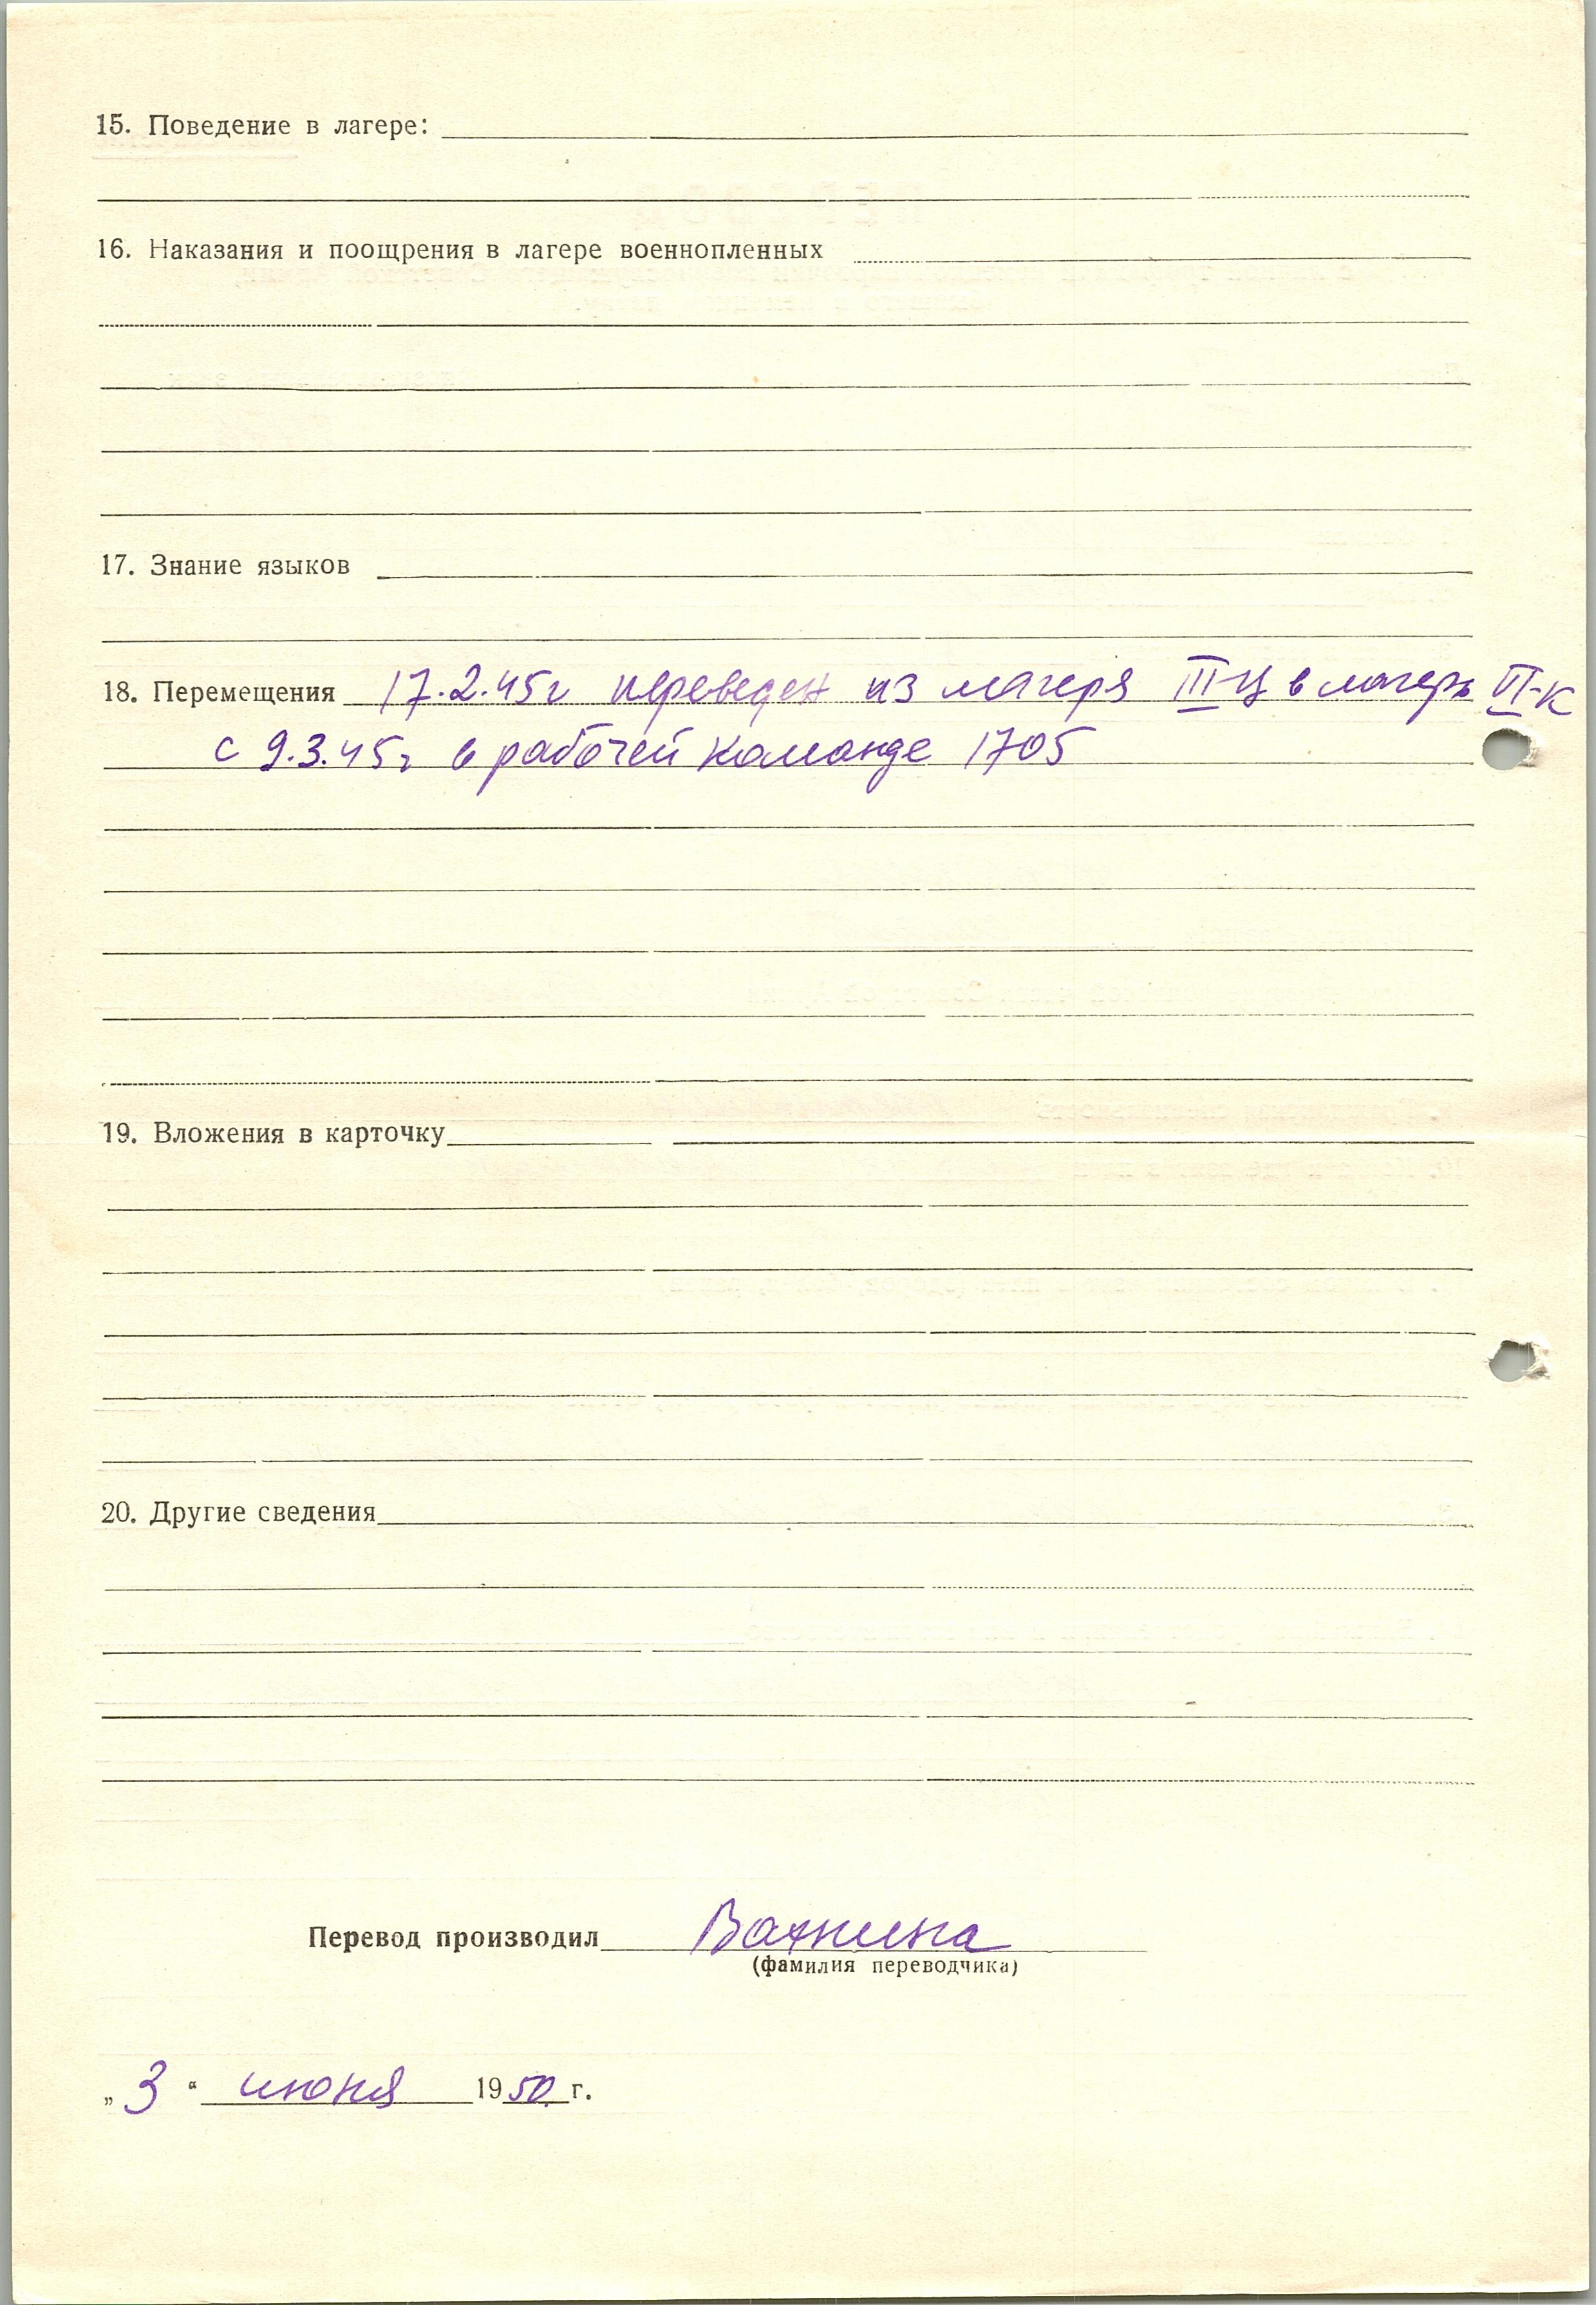 15. Поведение в лагере:
16. Наказания и поощрения в лагере военнопленных
17. Знание языков
18. Перемещения 17.2.45г переведен из лагеря III-Ц в лагерь VI-К
с 9.3.45г в рабочей команде 1705
19. Вложения в карточку
20. Другие сведения
Перевод производил Вахнина
(фамилия переводчика)
„ 3 “ июня 1950 г.